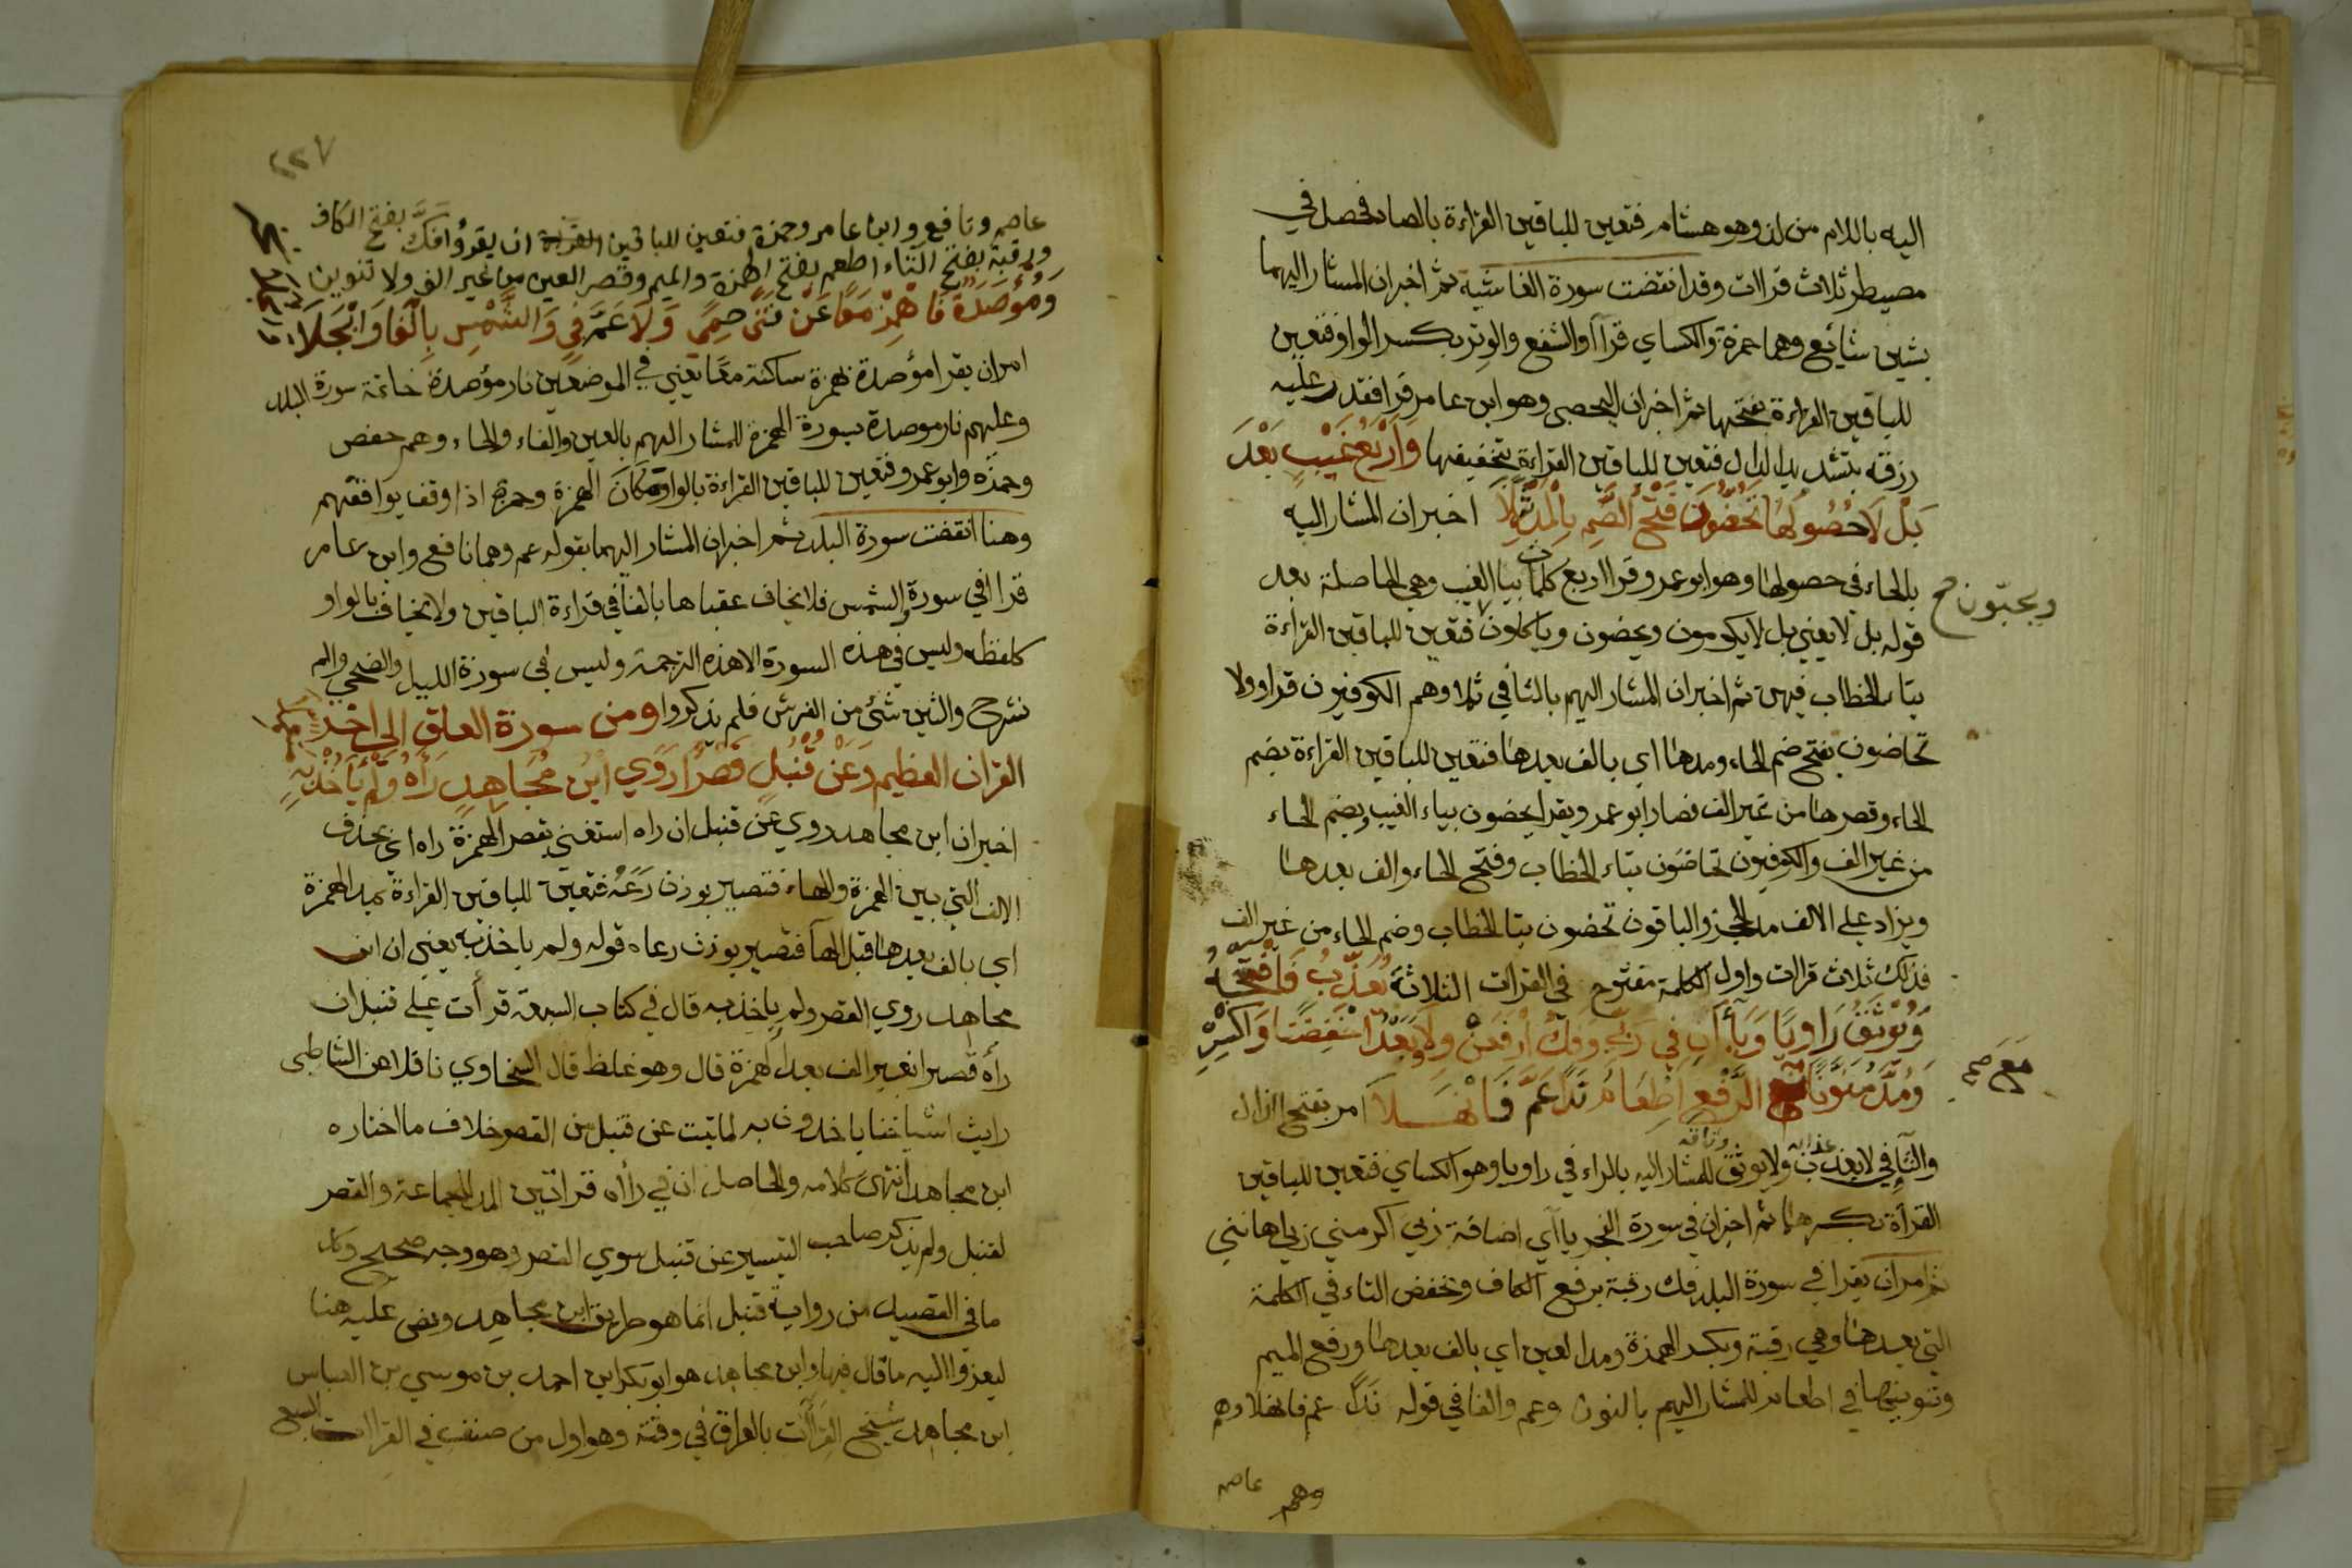 اليه باللام من لذ وهو هشام فتعين للباقين القراءة بالصاد فحصل في
مصيطر ثلاث قراات وقد انقضت سورة الغاشية ثم اخبر ان المشار اليهما
بشين شائع وهما حمزة والكساي قراآ والشفع والوتر بكسر الواو فتعين
للباقين القراءة بفتحها ثم اخبر ان اليحصبي وهو ابن عامر قرا فقدر عليه
رزقه بتشديد الدال فتعين للباقين القراءة بتخفيفها وَاَرْبَعُ غَيْبٍ بَعْدَ
بَلْ لَا حُصُولُهَا تَحُضُّونَ فَتْحُ الضَّمِّ بِالْمَدِّ ثُمِّلَا اخبر ان المشار اليه
بالحاء في حصولها وهو ابو عمرو قرا اربع كلمات بيا الغيب وهي الحاصلة بعد
قوله بل لا يعني بل لا يكرمون ويحضون وياكلون فتعين للباقين القراءة
ويحبّون صح
بتاء الخطاب فيهن ثم اخبر ان المشار اليهم بالثا في ثملا وهم الكوفيون قراو ولا
تحاضون بفتح ضم الحاء ومدها اي بالف بعدها فتعين للباقين القراءة بضم
الحاء وقصرها من غير الف فصار ابو عمرو يقرا يحضون بياء الغيب وبضم الحاء
من غير الف والكوفيون تحاضون بتاء الخطاب وفتح الحاء والف بعدها
ويزاد على الالف مد الحجز والباقون تحضون بتا الخطاب وضم الحاء من غير الف
فذلك ثلاث قراات واول الكلمة مفتوح في القراات الثلاثة يُعَذِّبُ فَافْتَحْهُ
وَيُوثِقُ رَاوِيًا وَيَاءَانِ فِي رَبِّي وَفَكُّ ارْفَعَنْ وِلَا وَبَعْدُ اخْفِضَنْ وَاكْسِرْ
وَمُدَّ مُنَوِّنًا مَعَ الرَّفْعِ اِطْعَامٌ نَدًا عَمَّ فَانْهَلَا امر بفتح الذال
مَعَ صح
والثا في لا يعذب عذابه ولا يوثق وثاقه للمشار اليه بالراء في راويا وهو الكساي فتعين للباقين
القراءة بكسرهما ثم اخبر ان في سورة الفجر يااي اضافة ربي اكرمني ربي اهانني
ثم امر ان يقرا في سورة البلد فك رقبة برفع الكاف وتخفض التاء في الكلمة
التي بعدها وهي رقبة وبكسر الهمزة ومد العين اي بالف بعدها ورفع الميم
وتنوينها في اطعام للمشار اليهم بالنون وعم والفا في قوله ندا عم فانهلا وهم
وهم عاصم
٢٢٧
عاصم ونافع وابن عامر وحمزة فتعين للباقين القراءة ان يقرؤا فَكَّ بفتح الكاف
ورقبة بفتح التاء اطعم بفتح الهمزة والميم وقصر العين من غير الف ولا تنوين
وَمُؤْصَدَةٌ فَاهْمِزْ مَعًا عَنْ فَتًى حِمًى وَلَا عَمَّ فِي وَالشَّمْسِ بِالْفَا وَانْجَلَا
امر ان يقرا مؤصدة بهمزة ساكنة معًا يعني في الموضعين نار مؤصدة خاتمة سورة البلد
وعليهم نار موصدة بسورة الهمزة للمشار اليهم بالعين والفاء والحاء وهم حفص
وحمزه وابو عمرو فتعين للباقين القراءة بالواو مكان الهمزة وحمزة اذا وقف يوافقهم
وهنا انقضت سورة البلد ثم اخبر ان المشار اليهما بقوله عم وهما نافع وابن عامر
قراا في سورة والشمس فلا يخاف عقباها بالفا في قراءة الباقين ولا يخاف بالواو
كلفظه وليس في هذه السورة الا هذه الترجمة وليس في سورة الليل والضحى والم
نشرح والتين شئ من الفرش فلم يذكروا ومن سورة العلق الى اخر
القران العظيم وَعَنْ قُنْبُلٍ قَصْرًا رَوَي ابْنُ مُجَاهِدٍ رَآهُ وَلَمْ يَاْخُذْ بِهِ
اخبر ان ابن مجاهد روي عن قنبل ان راه استغنى بقصر الهمزة راه اي بحذف
الالف التي بين الهمزة والهاء فتصير بوزن رَعَهُ فتعين للباقين القراءة بمد الهمزة
اي بالف بعدها قبل الهآ فتصير بوزن رعاه قوله ولم ياخذ به يعني ان ابن
مجاهد روي القصر ولم ياخذ به قال في كتاب السبعة قرأت على قنبل ان
رأه قصيرا بغير الف بعد الهمزة قال وهو غلط قال السخاوي ناقلا عن الشاطبى
رايت اشياخنا ياخذون به لما ثبت عن قنبل من القصر خلاف ما اختاره
ابن مجاهد انتهى كلامه والحاصل ان في رأاه قراتين المد للجماعة والقصر
لقنبل ولم يذكر صاحب التيسير عن قنبل سوي القصر وهو وجه صحيح وكل
ما في القصيد من رواية قنبل انما هو طريق ابن مجاهد ونص عليه هنا
ليعزوا اليه ما قال فيها وابن مجاهد هو ابو بكر ابن احمد بن موسي بن العباس
ابن مجاهد شيخ القراآت بالعراق في وقته وهو اول من صنف في القراات السبع